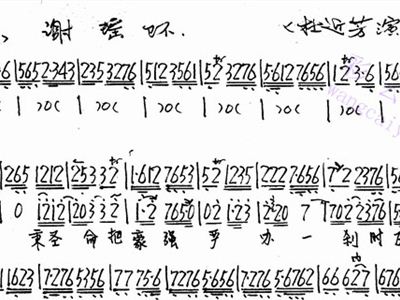 谢瑶环. 〈杜近芳演
·6|565 2·343|235 3276|512 3561|52 3276|5612 7656|12 3·6|56
|265 1212|2533 2|1·612 7653|52 1235|222 7·656|7 2 2376|56
0 1212|2033 2|1·2 7650|02 1·23|2·20 7|702 2376|5
秉圣命把豪强严办一刹时
1623|7·276 5356|77 75·6|7·276 5·356|7·276 5·6762|66 627|